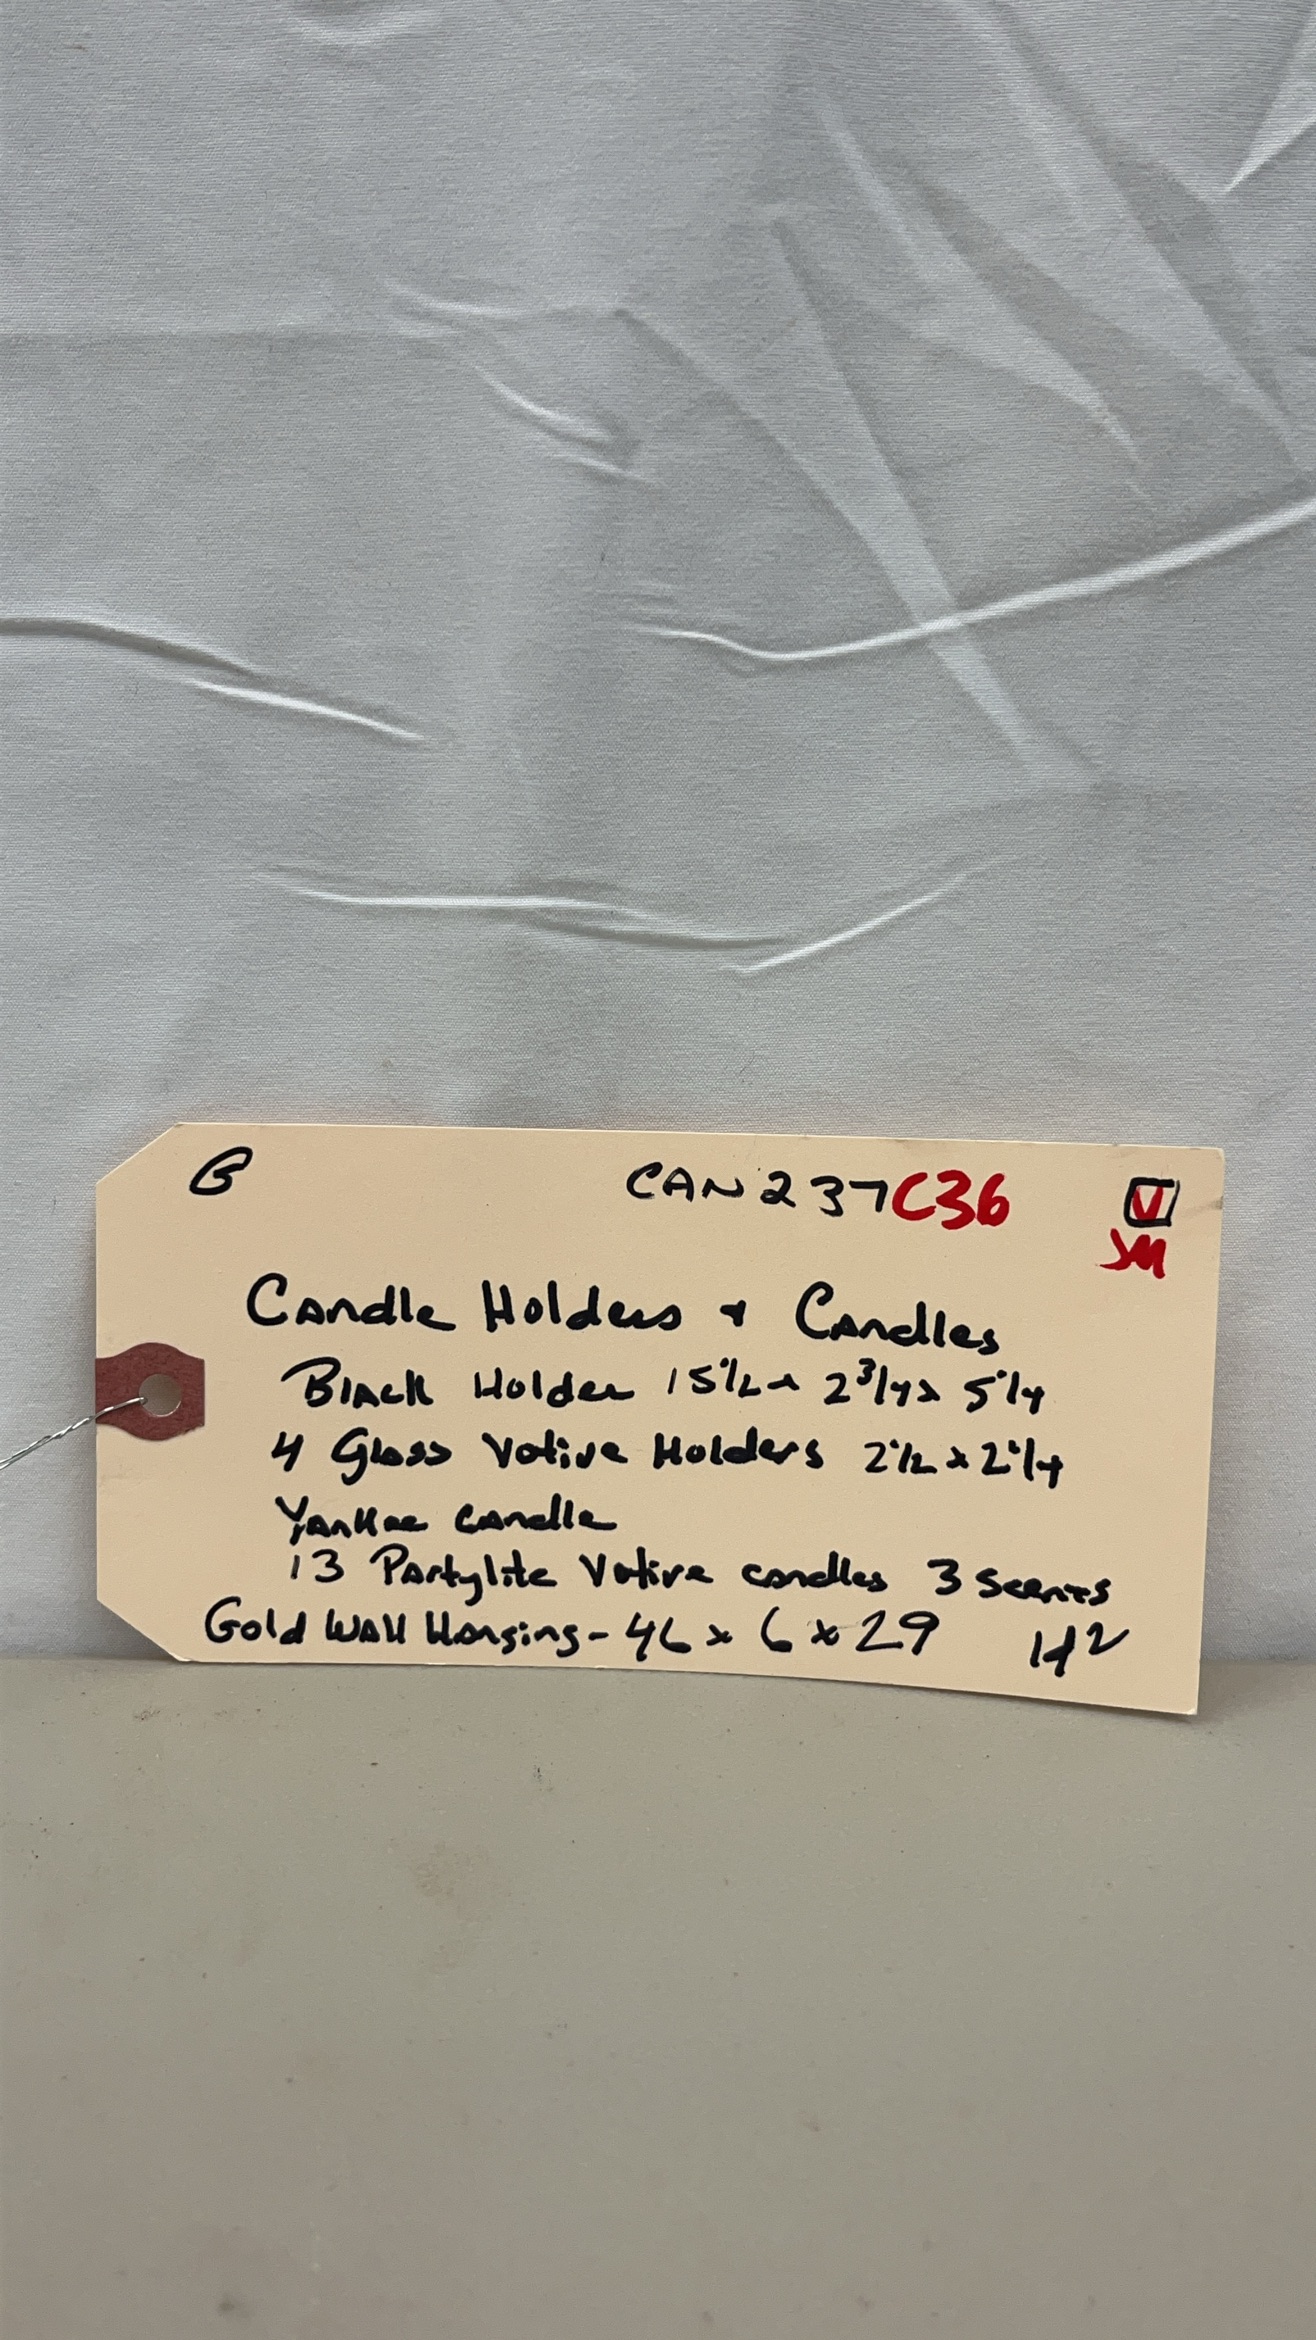 B CAN237C36 V
JM
Candle Holders + Candles
Black Holder 15 1/2 x 2 3/4 x 5 1/4
4 Glass Votive Holders 2 1/2 x 2 1/4
Yankee Candle
13 Partylite Votive candles 3 scents
Gold Wall Hanging - 46 x 6 x 29 H2